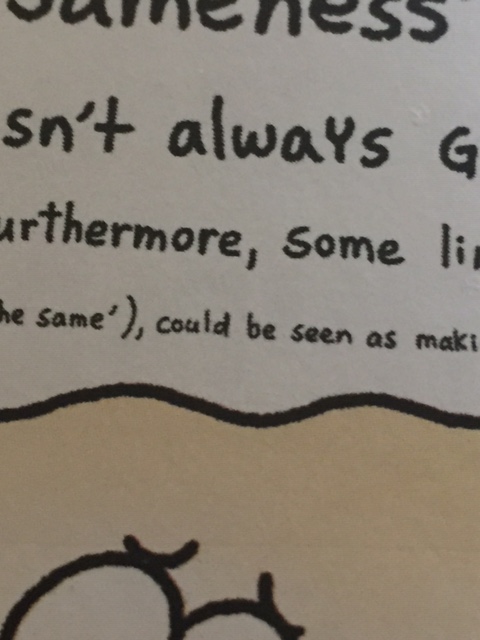 Sameness
sn't always G
urthermore, some li
he same'), could be seen as maki